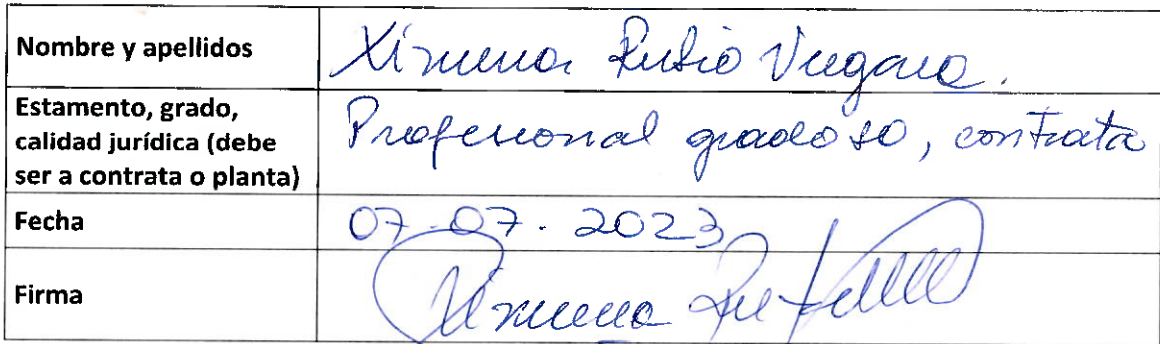 Nombre y apellidos Ximena Rubio Vergara.
Estamento, grado, calidad jurídica (debe ser a contrata o planta) Profesional grado 10, contrata
Fecha 07-07-2023
Firma Ximena